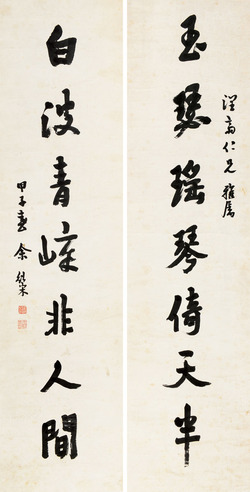 玉瑟瑶琴倚天半
仁兄雅属
白波青嶂非人間
甲子春余紹宋